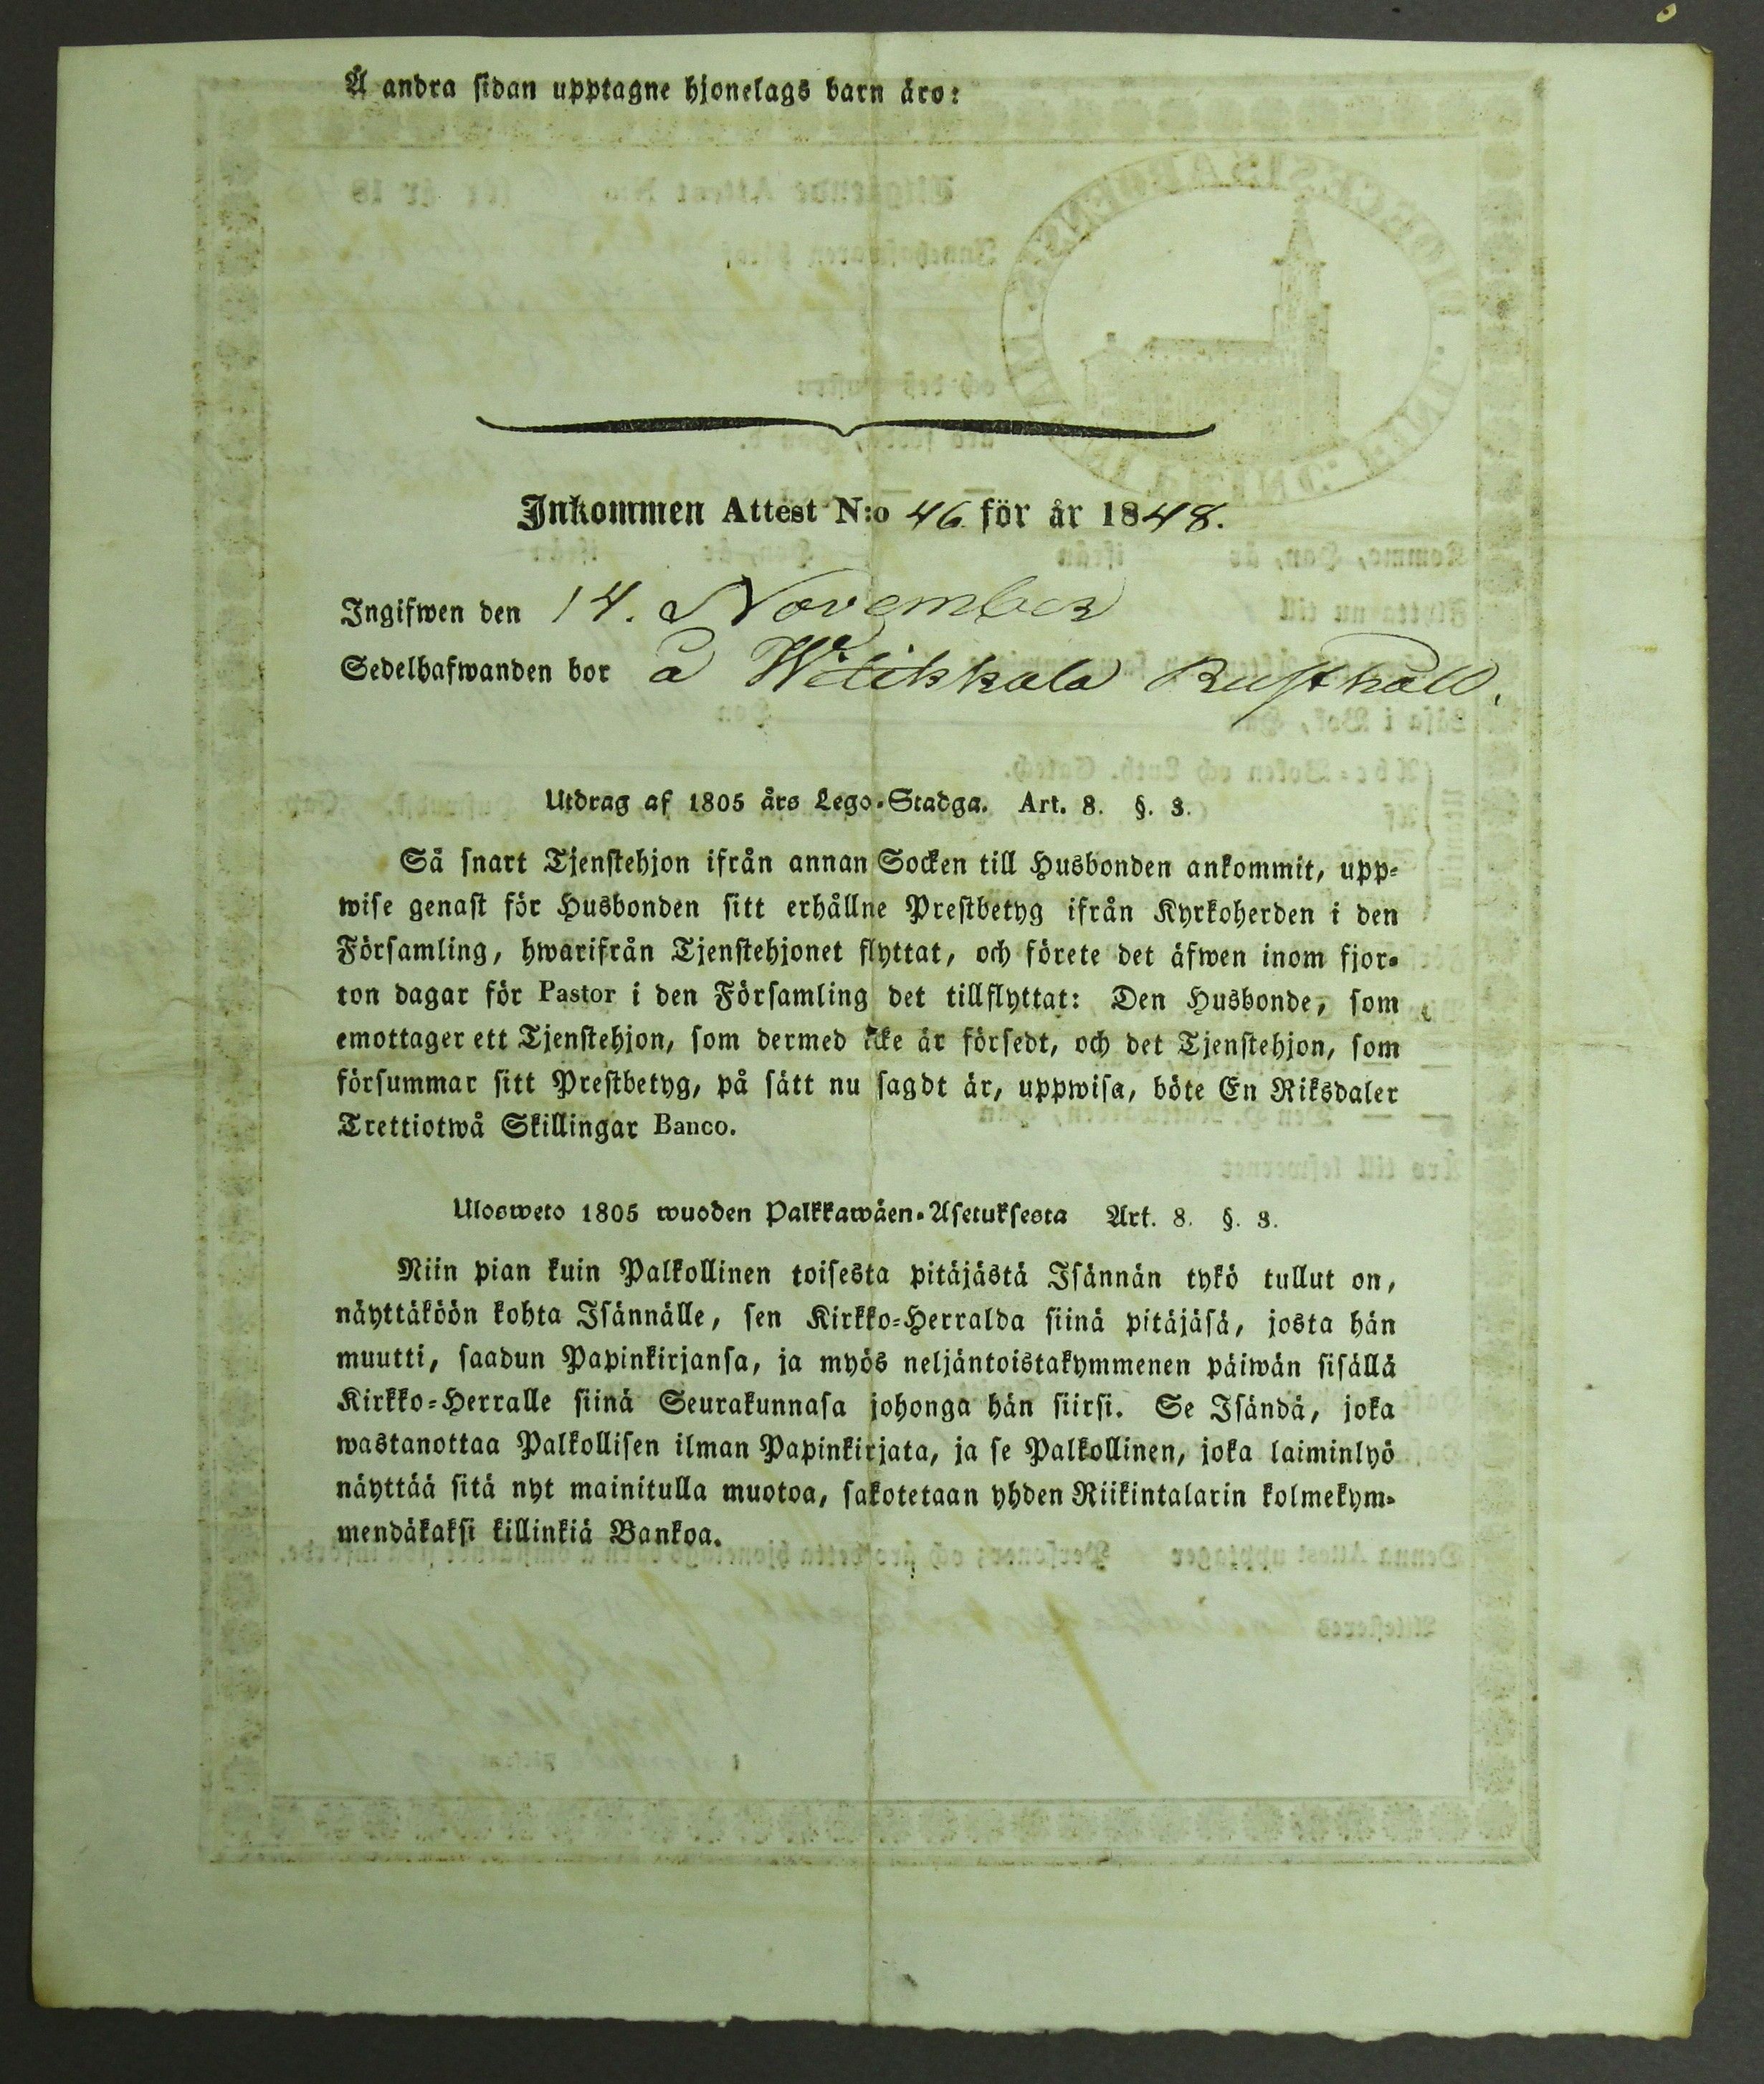 Å andra sidan upptagne hjonelags barn äro:
Inkommen Attest N:o 46 för år 1848.
Ingifwen den 14. November
Sedelhafwanden bor å Rusthåll.
Utdrag af 1805 års Lego-Stadga. Art. 8. §. 3.
Så snart Tjenstehjon ifrån annan Socken till Husbonden ankommit, upp-
wise genast för Husbonden sitt erhållne Prestbetyg ifrån Kyrkoherden i den
Församling, hwarifrån Tjenstehjonet flyttat, och förete det äfwen inom fjor-
ton dagar för Pastor i den Församling det tillflyttat: Den Husbonde, som
emottager ett Tjenstehjon, som dermed icke är försedt, och det Tjenstehjon, som
försummar sitt Prestbetyg, på sätt nu sagdt är, uppwisa, böte En Riksdaler
Trettiotwå Skillingar Banco.
Ulosweto 1805 wuoden Palkkawäen-Asetuksesta Art. 8. §. 3.
Niin pian kuin Palkollinen toisesta pitäjästä Isännän tykö tullut on,
näyttäköön kohta Isännälle, sen Kirkko-Herralda siinä pitäjäsä, josta hän
muutti, saadun Papinkirjansa, ja myös neljäntoistakymmenen päiwän sisällä
Kirkko-Herralle siinä Seurakunnasa johonga hän siirsi. Se Isändä, joka
wastanottaa Palkollisen ilman Papinkirjata, ja se Palkollinen, joka laiminlyö
näyttää sitä nyt mainitulla muotoa, sakotetaan yhden Riikintalarin kolmekym-
mendäkaksi killinkiä Bankoa.